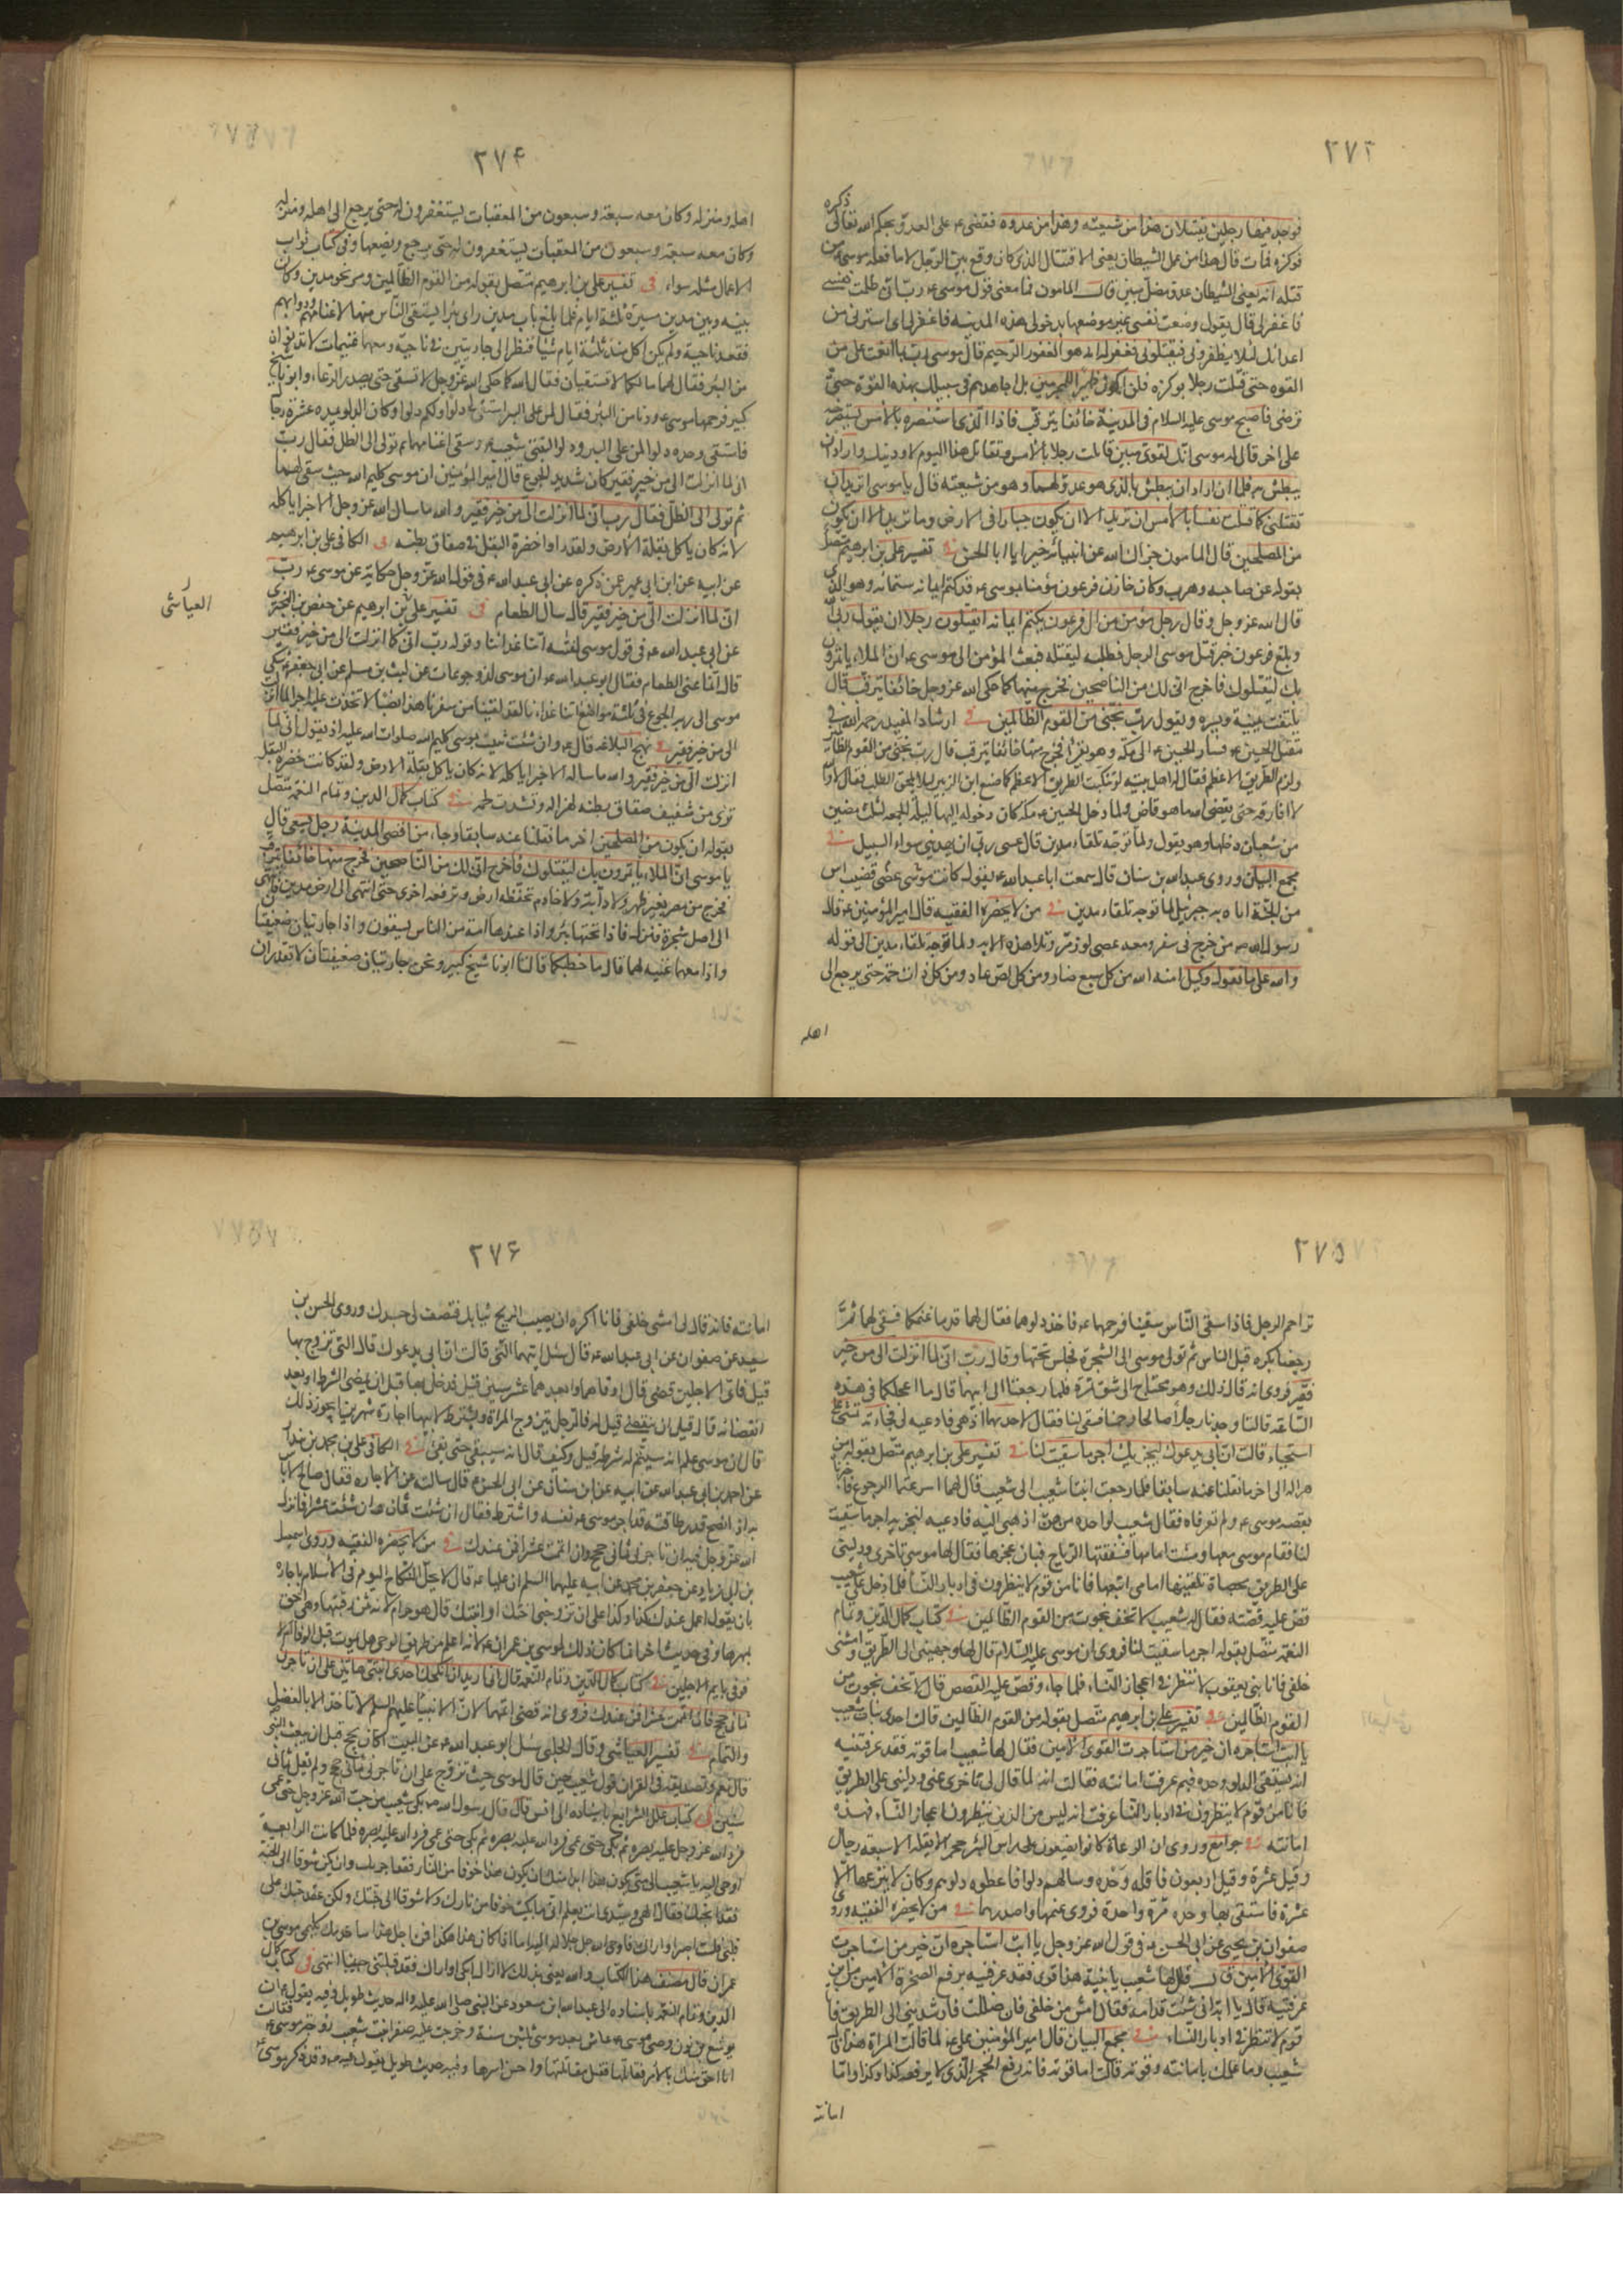 ٢٧٣
ذكره
فوجد فيها رجلين يقتتلان هذا من شيعته وهذا من عدوه فقضى ع على العدو بحكم الله تعالى
فوكزه فمات قال هذا من عمل الشيطان يعنى الاقتتال الذى كان وقع بين الرجلين لا ما فعله موسى ع من
قتله انه يعنى الشيطان عدو مضل مبين قال المامون فما معنى قول موسى ع رب انى ظلمت نفسى
فاغفر لى قال يقول وضعت نفسى غير موضعها بدخولى هذه المدينة فاغفر لى اى استرنى من
اعدائك لئلا يظفروا بى فيقتلونى فغفر له انه هو الغفور الرحيم قال موسى رب بما انعمت على من
القوة حتى قتلت رجلا بوكزه فلن اكون ظهيرا للمجرمين بل اجاهدهم فى سبيلك بهذه القوة حتى
ترضى فاصبح موسى عليه السلام فى المدينة خائفا يترقب فاذا الذى استنصره بالامس يستصرخه
على اخر قال له موسى انك لغوى مبين قاتلت رجلا بالامس وتقاتل هذا اليوم لاودينك واراد ان
يبطش به فلما ان اراد ان يبطش بالذى هو عدو لهما وهو من شيعته قال يا موسى اتريد ان
تقتلنى كما قتلت نفسا بالامس ان تريد الا ان تكون جبارا فى الارض وما تريد الا ان تكون
من المصلحين قال المامون جزاك الله عن انبيائه خيرا يا ابا الحسن فى تفسير على بن ابرهيم متصل
بقوله عن صاحبه وهرب وكان خازن فرعون مؤمنا بموسى ع قد كتم ايمانه ستمائة وهو الذى
قال الله عز وجل وقال رجل مؤمن من ال فرعون يكتم ايمانه اتقتلون رجلا ان يقول ربى
وبلغ فرعون خبر قتل موسى الرجل فطلبه ليقتله فبعث المؤمن الى موسى ع ان الملاء ياتمرون
بك ليقتلوك فاخرج انى لك من الناصحين فخرج منها كما حكى الله عز وجل خائفا يترقب قال
يلتفت يمينة ويسره ويقول رب نجنى من القوم الظالمين فى ارشاد المفيد رحمه الله فى
مقتل الحسين ع فسار الحسين ع الى مكة وهو يقرأ فخرج منها خائفا يترقب قال رب نجنى من القوم الظالمين
ولزم الطريق الاعظم فقال له اهل بيته لو تنكبت الطريق الاعظم كما صنع ابن الزبير ليلا يلحق الطلب فقال لا والله
لا افارقه حتى يقضى الله ما هو قاض ولما دخل الحسين ع مكة كان دخوله اليها ليلة الجمعة لثلث مضين
من شعبان دخلها وهو يقول ولما توجه تلقاء مدين قال عسى ربى ان يهدينى سواء السبيل فى
مجمع البيان وروى عبدالله بن سنان قال سمعت ابا عبدالله ع يقول كانت موسى عصى قضيب اس
من الجنة اتاه به جبرئيل لما توجه تلقاء مدين فى من لا يحضره الفقيه قال امير المؤمنين ع قال
رسول الله ص من خرج فى سفر ومعه عصى لوز مر وتلا هذه الاية ولما توجه تلقاء مدين الى قوله
والله على ما نقول وكيل امنه الله من كل سبع ضار ومن كل لص عاد ومن كل ذات حمة حتى يرجع الى
اهله
٢٧۴
اهله ومنزله وكان معه سبعة وسبعون من المعقبات يستغفرون له حتى يرجع الى اهله ومنزله
وكان معه سبعة وسبعون من المعقبات يستغفرون له حتى يرجع ويضعها وفى كتاب ثواب
الاعمال مثله سواء فى تفسير على بن ابرهيم متصل بقوله من القوم الظالمين ومر نحو مدين وكان
بينه وبين مدين مسيرة ثلثة ايام فلما بلغ باب مدين راى بئرا يستقى الناس منها لاغنامهم ودوابهم
فقعد ناحية ولم يكن اكل منذ ثلثة ايام شيئا فنظر الى جاريتين فى ناحية ومعهما غنيمات لا تدنوان
من البئر فقال لهما ما لكما لا تستقيان فقالتا كما حكى الله عز وجل لا نسقى حتى يصدر الرعاء وابونا شيخ
كبير فرحمهما موسى ع ودنا من البئر فقال لمن على البئر استقى لى دلوا ولكم دلوا وكان الدلو يمده عشرة رجال
فاستقى وحده دلوا لمن على البير ودلوا لبنتى شعيب ع وسقى اغنامهما ثم تولى الى الظل فقال رب
انى لما انزلت الى من خير فقير كان شديد الجوع قال امير المؤمنين ان موسى كليم الله حيث سقى لهما
ثم تولى الى الظل فقال رب انى لما انزلت الى من خير فقير والله ما سال الله عز وجل الا خبزا ياكله
لانه كان ياكل بقلة الارض ولقد راوا خضرة البقل فى صفاق بطنه فى الكافى على بن ابرهيم
عن ابيه عن ابن ابى عمير عمن ذكره عن ابى عبد الله ع فى قول الله عز وجل حكاية عن موسى ع رب
انى لما انزلت الى من خير فقير قال سال الطعام فى تفسير على بن ابرهيم عن حفص بن البخترى
العياشى
عن ابى عبد الله ع فى قول موسى لفتيه اتنا غدائنا وقوله رب انى لما انزلت الى من خير فقير
قال انما عنى الطعام فقال ابو عبد الله ع وان موسى لذو جوعات عن ليث بن سلم عن ابى جعفر ع شكى
موسى الى ربه الجوع فى ثلثة مواضع اتنا غداءنا لقد لقينا من سفرنا هذا نصبا لاتخذت عليه اجرا لما انزلت
الى من خير فقير فى نهج البلاغة قال ع وان شئت ثنيت بموسى كليم الله صلوات الله عليه اذ يقول انى لما
انزلت الى من خير فقير والله ما ساله الا خبزا ياكله لانه كان ياكل بقلة الارض ولقد كانت خضرة البقل
ترى من شفيف صفاق بطنه لهزاله وتشذب لحمه فى كتاب كمال الدين وتمام النعمة متصل
بقوله ان يكون من المصلحين اخر ما نقلنا عنه سابقا وجاء من اقصى المدينة رجل يسعى قال
يا موسى ان الملاء ياتمرون بك ليقتلوك فاخرج انى لك من الناصحين فخرج منها خائفا يترقب
فخرج من مصر بغير ظهر ولا دابة ولا خادم تخفظه ارض وترفعه اخرى حتى انتهى الى ارض مدين فانتهى
الى اصل شجرة فنزل فاذا تحتها بئر واذا عندها امة من الناس يسقون واذا جاريتان ضعيفتا
واذا معهما غنيمة لهما قال ما خطبكما قالتا ابونا شيخ كبير ونحن جاريتان ضعيفتان لا نقدر ان
٢٧۵
نزاحم الرجل فاذا سقى الناس سقينا فرحمهما ع فاخذ دلوهما فقال لهما قدما غنمكما فسقى لهما ثم
رجعتا بكرة قبل الناس ثم تولى موسى الى الشجرة فجلس تحتها وقال رب انى لما انزلت الى من خير
فقير فروى انه قال ذلك وهو محتاج الى شق تمرة فلما رجعتا الى ابيهما قال ما اعجلكما فى هذه
الساعة قالتا وجدنا رجلا صالحا رحمنا فسقى لنا فقال لاحديهما اذهبى فادعيه لى فجاءته تمشى على
استحياء قالت ان ابى يدعوك ليجزيك اجر ما سقيت لنا فى تفسير على بن ابرهيم متصل بقوله من
هزاله الى اخر ما نقلنا عنه سابقا فلما رجعت ابنتا شعيب الى شعيب قال لهما اسرعتما الرجوع فاخبرتاه
بقصة موسى ع ولم تعرفاه فقال شعيب لواحدة منهن اذهبى اليه فادعيه لنجزيه اجر ما سقيت
لنا فقام موسى معها ومشت امامها فسفقتها الرياح فبان عجزها فقال لها موسى تاخرى ودلينى
على الطريق بحصاة تلقينها امامى اتبعها فانا من قوم لا ينظرون فى ادبار النساء فلما دخل على شعيب
قص عليه قصته فقال له شعيب لا تخف نجوت من القوم الظالمين فى كتاب كمال الدين وتمام
النعمة متصل بقوله اجر ما سقيت لنا فروى ان موسى عليه السلام قال لها وجهينى الى الطريق وامشى
خلفى فانا بنى يعقوب لا ننظر فى اعجاز النساء فلما جاءه وقص عليه القصص قال لا تخف نجوت من
القوم الظالمين فى تفسير على بن ابرهيم متصل بقوله من القوم الظالمين قالت احدى بنات شعيب
يا ابت استاجره ان خير من استاجرت القوى الامين فقال لها شعيب اما قوته فقد عرفتنيه
انه يستقى الدلو وحده فبم عرفت امانته فقالت انه لما قال لى تاخرى عنى ودلينى على الطريق
فانا من قوم لا ينظرون فى ادبار النساء عرفت انه ليس من الذين ينظرون اعجاز النساء فهذه
امانته فى جوامع وروى ان الرعاة كانوا يضعون على راس البئر حجرا لا يقله الا سبعة رجال
وقيل عشرة وقيل اربعون فاقله وحده وسالهم دلوا فاعطوه دلوهم وكان لا ينزعها الا
عشرة فاستقى بها وحده مرة واحدة فروى غنمهما واصدرهما فى من لا يحضره الفقيه وروى
صفوان بن يحيى عن ابى الحسن ع فى قول الله عز وجل يا ابت استاجره ان خير من استاجرت
القوى الامين قال قال لها شعيب يا بنية هذا قوى فقد عرفتيه برفع الصخرة الامين من اين
عرفتيه قالت يا ابت انى مشيت قدامه فقال امشى من خلفى فان ضللت فارشدينى الى الطريق فانا
قوم لا ننظر فى ادبار النساء فى مجمع البيان قال امير المؤمنين على ع لما قالت المراة هذا قال
شعيب وما علمك بامانته وقوته قالت اما قوته فانه رفع الحجر الذى لا يرفعه كذا وكذا واما
امانته
٢٧۶
امانته فانه قال لى امشى خلفى فانا اكره ان يصيب الريح ثيابك فتصف لى جسدك وروى الحسن بن
سعيد عن صفوان عن ابى عبدالله ع قال سئل ايتهما التى قالت ان ابى يدعوك قال التى تزوج بها
قيل فاى الاجلين قضى قال اوفاهما وابعدهما عشر سنين قيل فدخل بها قبل ان يمضى الشرط او بعد
انقضائه قال قبل ان ينقضى قيل له فالرجل يتزوج المراة ويشترط لابيها اجارة شهرين ايجوز ذلك
قال ان موسى علم انه سيتم له شرطه قيل وكيف قال انه سيبقى حتى يفى فى الكافى على بن محمد بن بندار
عن احمد بن ابى عبدالله عن ابيه عن ابن سنان عن ابى الحسن ع قال سالت عن الاجارة فقال صالح لا باس
به اذا نصح قدر طاقته قد اجر موسى ع نفسه واشترط فقال ان شئت ثمان وان شئت عشرا فانزل
الله عز وجل فيه ان تاجرنى ثمانى حجج وان اتممت عشرا فمن عندك فى من لا يحضره الفقيه وروى اسمعيل
بن ابى زياد عن جعفر بن محمد عن ابيه عليهما السلم ان عليا ع قال لا يحل النكاح اليوم فى الاسلام باجارة
بان يقول اعمل عندك كذا وكذا على ان تزوجنى اختك او ابنتك قال هو حرام لانه ثمن رقبتها وهى احق
بمهرها وفى حديث اخر انما كان ذلك لموسى بن عمران ع لانه علم من طريق الوحى هل يموت قبل الوفاء ام لا
فوفى باتم الاجلين فى كتاب كمال الدين وتمام النعمة قال انى اريد ان انكحك احدى ابنتى هاتين على ان تاجرنى
ثمانى حجج فان اتممت عشرا فمن عندك فروى انه قضى اتمهما لان الانبياء عليهم السلم لا تاخذ الا بالفضل
والتمام فى تفسير العياشى وقال الحلبى سئل ابو عبد الله ع عن البيت اكان يحج قبل ان يبعث النبى ص
قال نعم وتصديقه فى القران قول شعيب حين قال لموسى حيث تزوج على ان تاجرنى ثمانى حجج ولم يقل ثمانى
سنين فى كتاب علل الشرايع باسناده الى انس قال قال رسول الله ص بكى شعيب من حب الله عز وجل حتى عمى
فرد الله عز وجل عليه بصره ثم بكى حتى عمى فرد الله عليه بصره ثم بكى حتى عمى فرد الله عليه بصره فلما كانت الرابعة
اوحى اليه يا شعيب الى متى يكون هذا ابدا منك ان يكون هذا خوفا من النار فقد اجرتك وان يكن شوقا الى الجنة
فقد ابحتك فقال الهى وسيدى انت تعلم انى ما بكيت خوفا من نارك ولا شوقا الى جنتك ولكن عقد حبك على
قلبى فلست اصبر او اراك فاوحى الله جل جلاله اليه اما اذا كان هذا هكذا فمن اجل هذا ساخدمك كليمى موسى بن
عمران قال مصنف هذا الكتاب والله يعنى بذلك لا ازال ابكى او اراك فقد قبلتنى حبيبا انتهى فى كتاب كمال
الدين وتمام النعمة باسناده الى عبدالله بن مسعود عن النبى صلى الله عليه واله حديث طويل وفيه يقول ع ان
يوشع بن نون وصى موسى ع عاش بعد موسى ثلثين سنة وخرجت عليه صفراء بنت شعيب زوجة موسى ع فقالت
انا احق منك بالامر فقاتلها فقتل مقاتليها واحسن اسرها وفيه حديث طويل يقول فيه ع وقد ذكر موسى ع